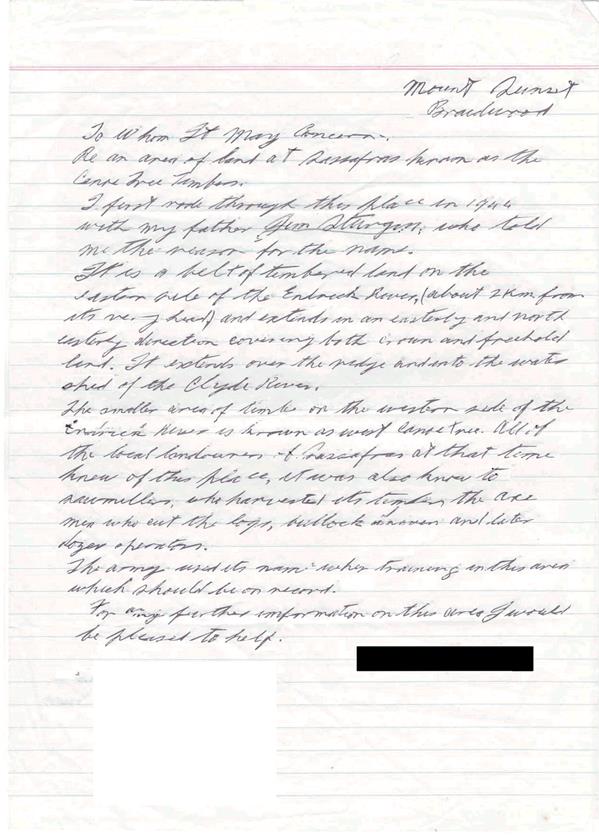 Mount Sunset
Braidwood
To Whom It May Concern.
Re an area of land at Sassafras known as the
Canoe Tree Timber.
I first rode through this place in 1944
with my father Jim Sturgiss, who told
me the reason for the name.
It is a belt of timbered land on the
eastern side of the Endrick River, (about 2km from
its very head) and extends in an easterly and north
easterly direction covering both crown and freehold
land. It extends over the ridge and into the water
shed of the Clyde River.
The smaller area of timber on the western side of the
Endrick River is known as west Canoe tree. All of
the local landowners of Sassafras at that time
knew of this place, it was also know to
sawmillers, who harvested its timber, the axe
men who cut the logs, bullock drivers and later
dozer operators.
The army used its name when training in this area
which should be on record.
For any further information on this area I would
be pleased to help.